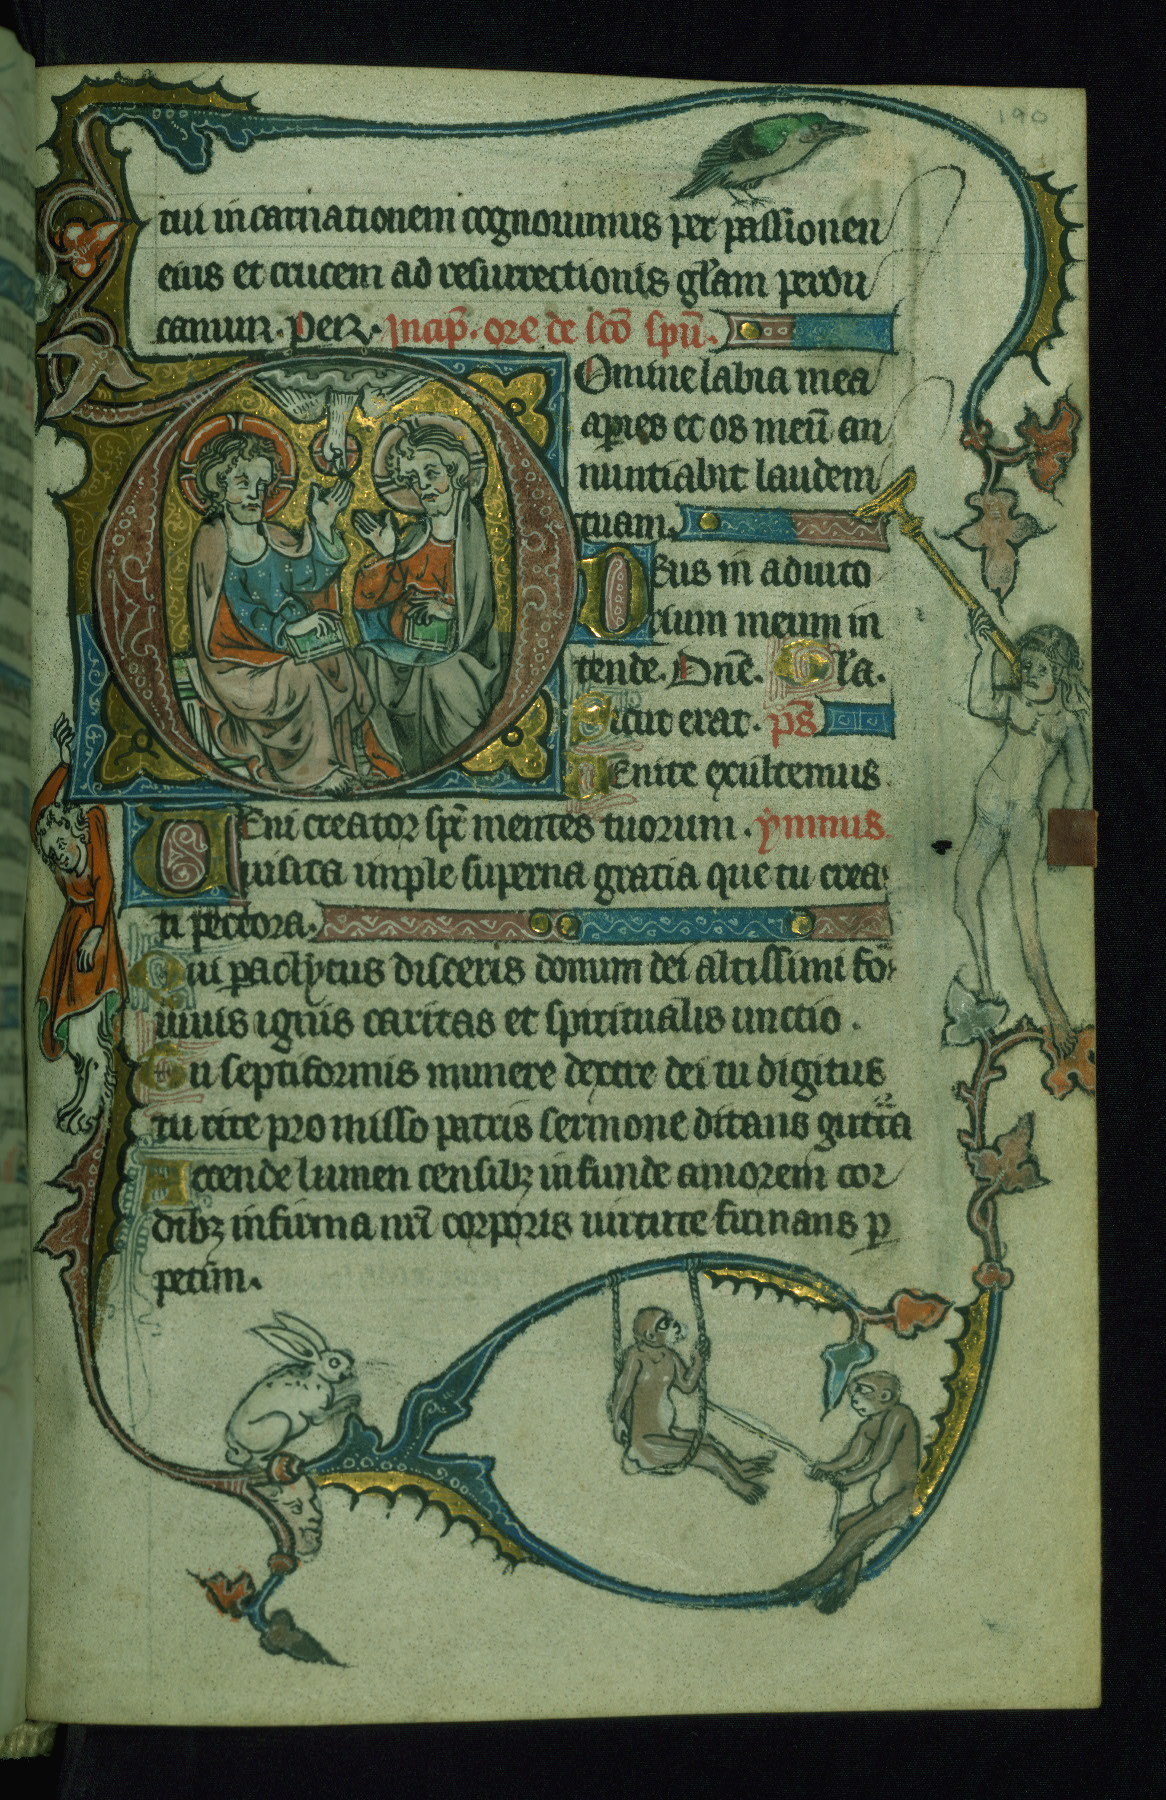 190
tui incarnationem cognouimus per passionen
eius et crucem ad resurrectionis gl̄am perdu
camur. Per. Incip̄. ore de sc̄o sp̄u.
Domine labia mea
apries et os meū an
nuntiabit laudem
tuam.
Deus in adiuto
rium meum in
tende. Dn̄e. Gl̄a.
Sicut erat. ps̄
Uenite exultemus
Ueni creator sp̄c mentes tuorum. ymnus
uisita imple superna gratia que tu crea
ti pectora.
Qui paclytus disceris donum dei altissimi fo
uiuis ignis caritas et spiritualis unctio.
Tu septiformis munere dextre dei tu digitus
tu rite promisso patris sermone ditans guttra
Accende lumen censibꝫ infunde amorem cor
dibꝫ infirma nr̄i corporis uirtute firmans p
petim.